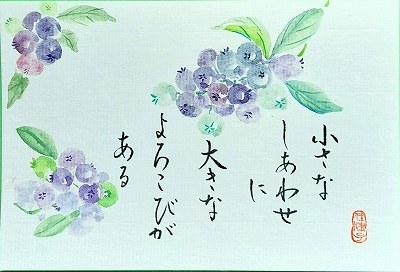 小さな
しあわせ
に
大きな
よろこびが
ある